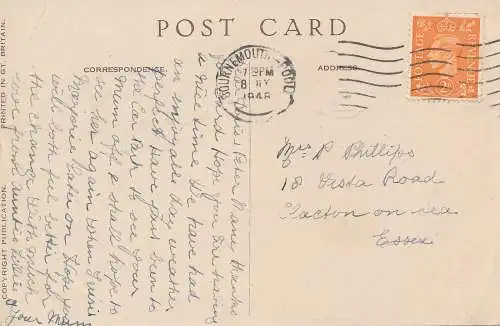 POST CARD
CORRESPONDENCE.
ADDRESS.
PRINTED IN GT. BRITAIN.
COPYRIGHT PUBLICATION.
BOURNEMOUTH POOLE
PM
8 MY
1948
POSTAGE
REVENUE
Mrs P Phillips
18 Vista Road
Clacton on Sea
Essex
thanks
card Hope you are having
a nice time We have had
an enjoyable day weather
perfect Have just been to
the Car Park to see your
Mum off & shall hope to
see her again when I visit
Marjorie later on Hope you
will both feel better for
the change With much
love from Auntie
& your Mum